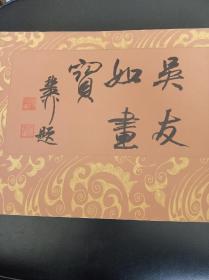 吴友
如畫
寶
題